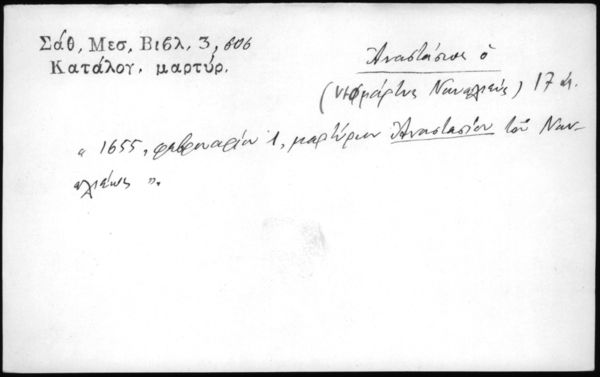 Σάθ, Μεσ, Βιβλ, 3, 606
Κατάλογ. μαρτύρ.
Ἀναστάσιος ὁ
(νεομάρτυς Ναυπλιεύς) 17 αἰ.
« 1655, φεβρουαρίου 1, μαρτύριον Ἀναστασίου τοῦ Ναυ-
πλιέως ».